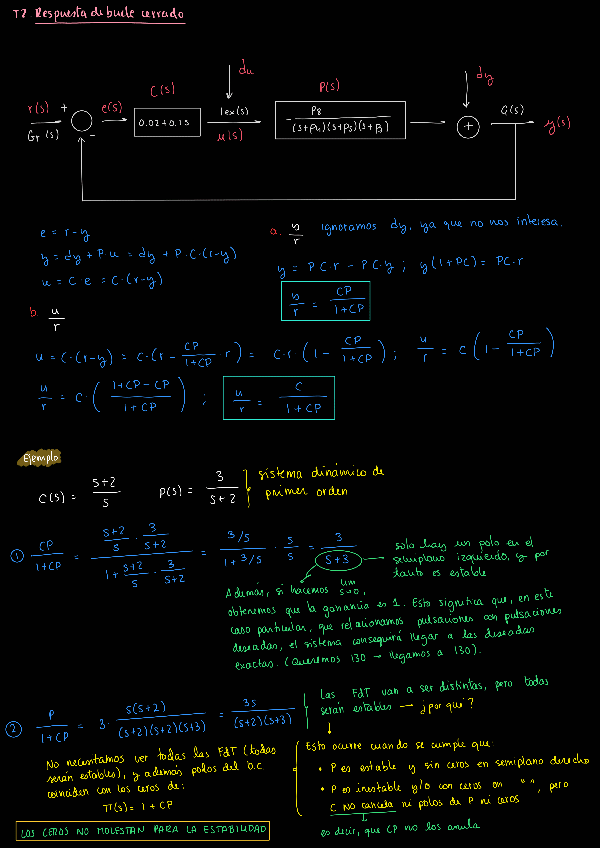 T2 Respuesta de bucle cerrado
du
dy
C(s)
P(s)
r(s) +
e(s)
0.02 + 0.1s
lex(s)
P8
(s+P4)(s+P5)(s+β)
+
G(s)
y(s)
Gr(s)
-
u(s)
e = r-y
y = dy + P u = dy + P·C·(r-y)
u = C·e = C·(r-y)
a. y/r ignoramos dy, ya que no nos interesa.
y = PC·r - PC·y ; y(1+PC) = PC·r
y/r = CP/(1+CP)
b u/r
u = C·(r-y) = C·(r - CP/(1+CP) · r) = C·r (1 - CP/(1+CP)) ; u/r = C (1 - CP/(1+CP))
u/r = C· ((1+CP-CP)/(1+CP)) ; u/r = C/(1+CP)
Ejemplo
C(s) = (s+2)/s P(s) = 3/(s+2)
sistema dinámico de
primer orden
① CP/(1+CP) = ((s+2)/s · 3/(s+2))/(1 + (s+2)/s · 3/(s+2)) = (3/s)/(1+3/s) · s/s = 3/(s+3)
solo hay un polo en el
semiplano izquierdo, y por
tanto es estable
Además, si hacemos lim s→0,
obtenemos que la ganancia es 1. Esto significa que, en este
caso particular, que relacionamos pulsaciones con pulsaciones
deseadas, el sistema conseguirá llegar a las deseadas
exactas. (Queremos 130 → llegamos a 130).
② P/(1+CP) = 3· s(s+2)/((s+2)(s+2)(s+3)) = 3s/((s+2)(s+3))
Las FdT van a ser distintas, pero todas
serán estables → ¿por qué?
No necesitamos ver todas las FdT (todas
serán estables), y además polos del b.c
coinciden con los ceros de:
π(s) = 1 + CP
Esto ocurre cuando se cumple que:
• P es estable y sin ceros en semiplano derecho
• P es inestable y/o con ceros en " ", pero
C NO cancela ni polos de P ni ceros
es decir, que CP no los anula
LOS CEROS NO MOLESTAN PARA LA ESTABILIDAD